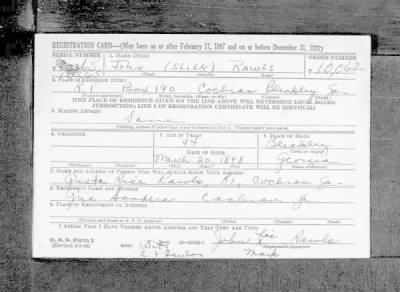 REGISTRATION CARD—(Men born on or after February 17, 1897 and on or before December 31, 1921)
SERIAL NUMBER 1. NAME (Print) ORDER NUMBER
John (Slick) Rawls 10,062
(First) (Middle) (Last)
2. PLACE OF RESIDENCE (Print)
R. 1 Box 190 Cochran Bleckley Ga.
(Number and street) (Town, township, village, or city) (County) (State)
[THE PLACE OF RESIDENCE GIVEN ON THE LINE ABOVE WILL DETERMINE LOCAL BOARD
JURISDICTION; LINE 2 OF REGISTRATION CERTIFICATE WILL BE IDENTICAL]
3. MAILING ADDRESS
Same
[Mailing address if other than place indicated on line 2. If same insert word same]
4. TELEPHONE 5. AGE IN YEARS 6. PLACE OF BIRTH
44 Bleckley
DATE OF BIRTH (Town or county)
March 20, 1898 Georgia
(Exchange) (Number) (Mo.) (Day) (Yr.) (State or country)
7. NAME AND ADDRESS OF PERSON WHO WILL ALWAYS KNOW YOUR ADDRESS
Rice Rawls, R1, Cochran Ga.
8. EMPLOYER'S NAME AND ADDRESS
Cochran Ga
9. PLACE OF EMPLOYMENT OR BUSINESS
(Number and street or R. F. D. number) (Town) (County) (State)
I AFFIRM THAT I HAVE VERIFIED ABOVE ANSWERS AND THAT THEY ARE TRUE.
D. S. S. Form 1
(Revised 1-1-42) John his Rawls
(Registrant's signature)
Mark